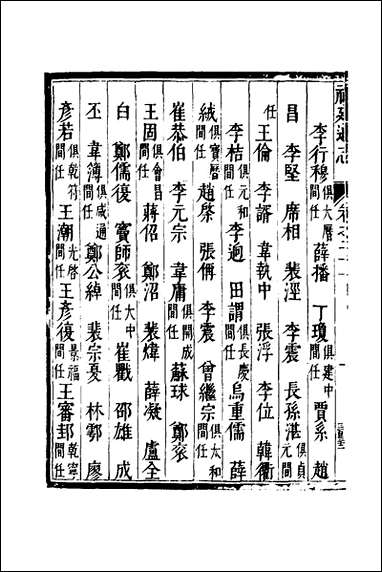 福建通志
李行穆俱大曆間任薛播 丁瓊俱建中間任賈系 趙
昌 李堅 席相 裴涇 李震 長孫湛俱貞元間
任王倫 李諝 韋執中 張浮 李位 韓衢
李桔俱元和間任李逈 田謂俱長慶間任烏重儒 薛
絨俱寶曆間任趙棨 張侢 李震 曾繼宗俱太和間任
崔恭伯 李元宗 韋庸俱開成間任蘇球 鄭衮
王固俱會昌間任蔣佋 鄭沼 裴煒 薛凝 盧全
白 鄭儒復 竇師衮俱大中間任崔戳 邵雄 成
丕 韋簿俱咸通間任鄭公綽 裴宗憂 林鄠 廖
彥若俱乾符間任王潮光啓間任王彥復景福間任王審邽乾寧間任